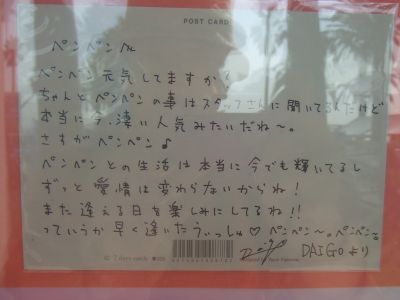 POST CARD
ペンペンへ
ペンペン元気してますか?
ちゃんとペンペンの事はスタッフさんに聞いてるんだけど
本当に今、凄い人気みたいだね〜。
さすがペンペン♪
ペンペンとの生活は本当に今でも輝いてるし
ずっと愛情は変わらないからね!
また逢える日を楽しみにしてるね!!
っていうか早く逢いたうぃっしゅ♡ペンペン〜。ペンペン〜。
DAIGOより